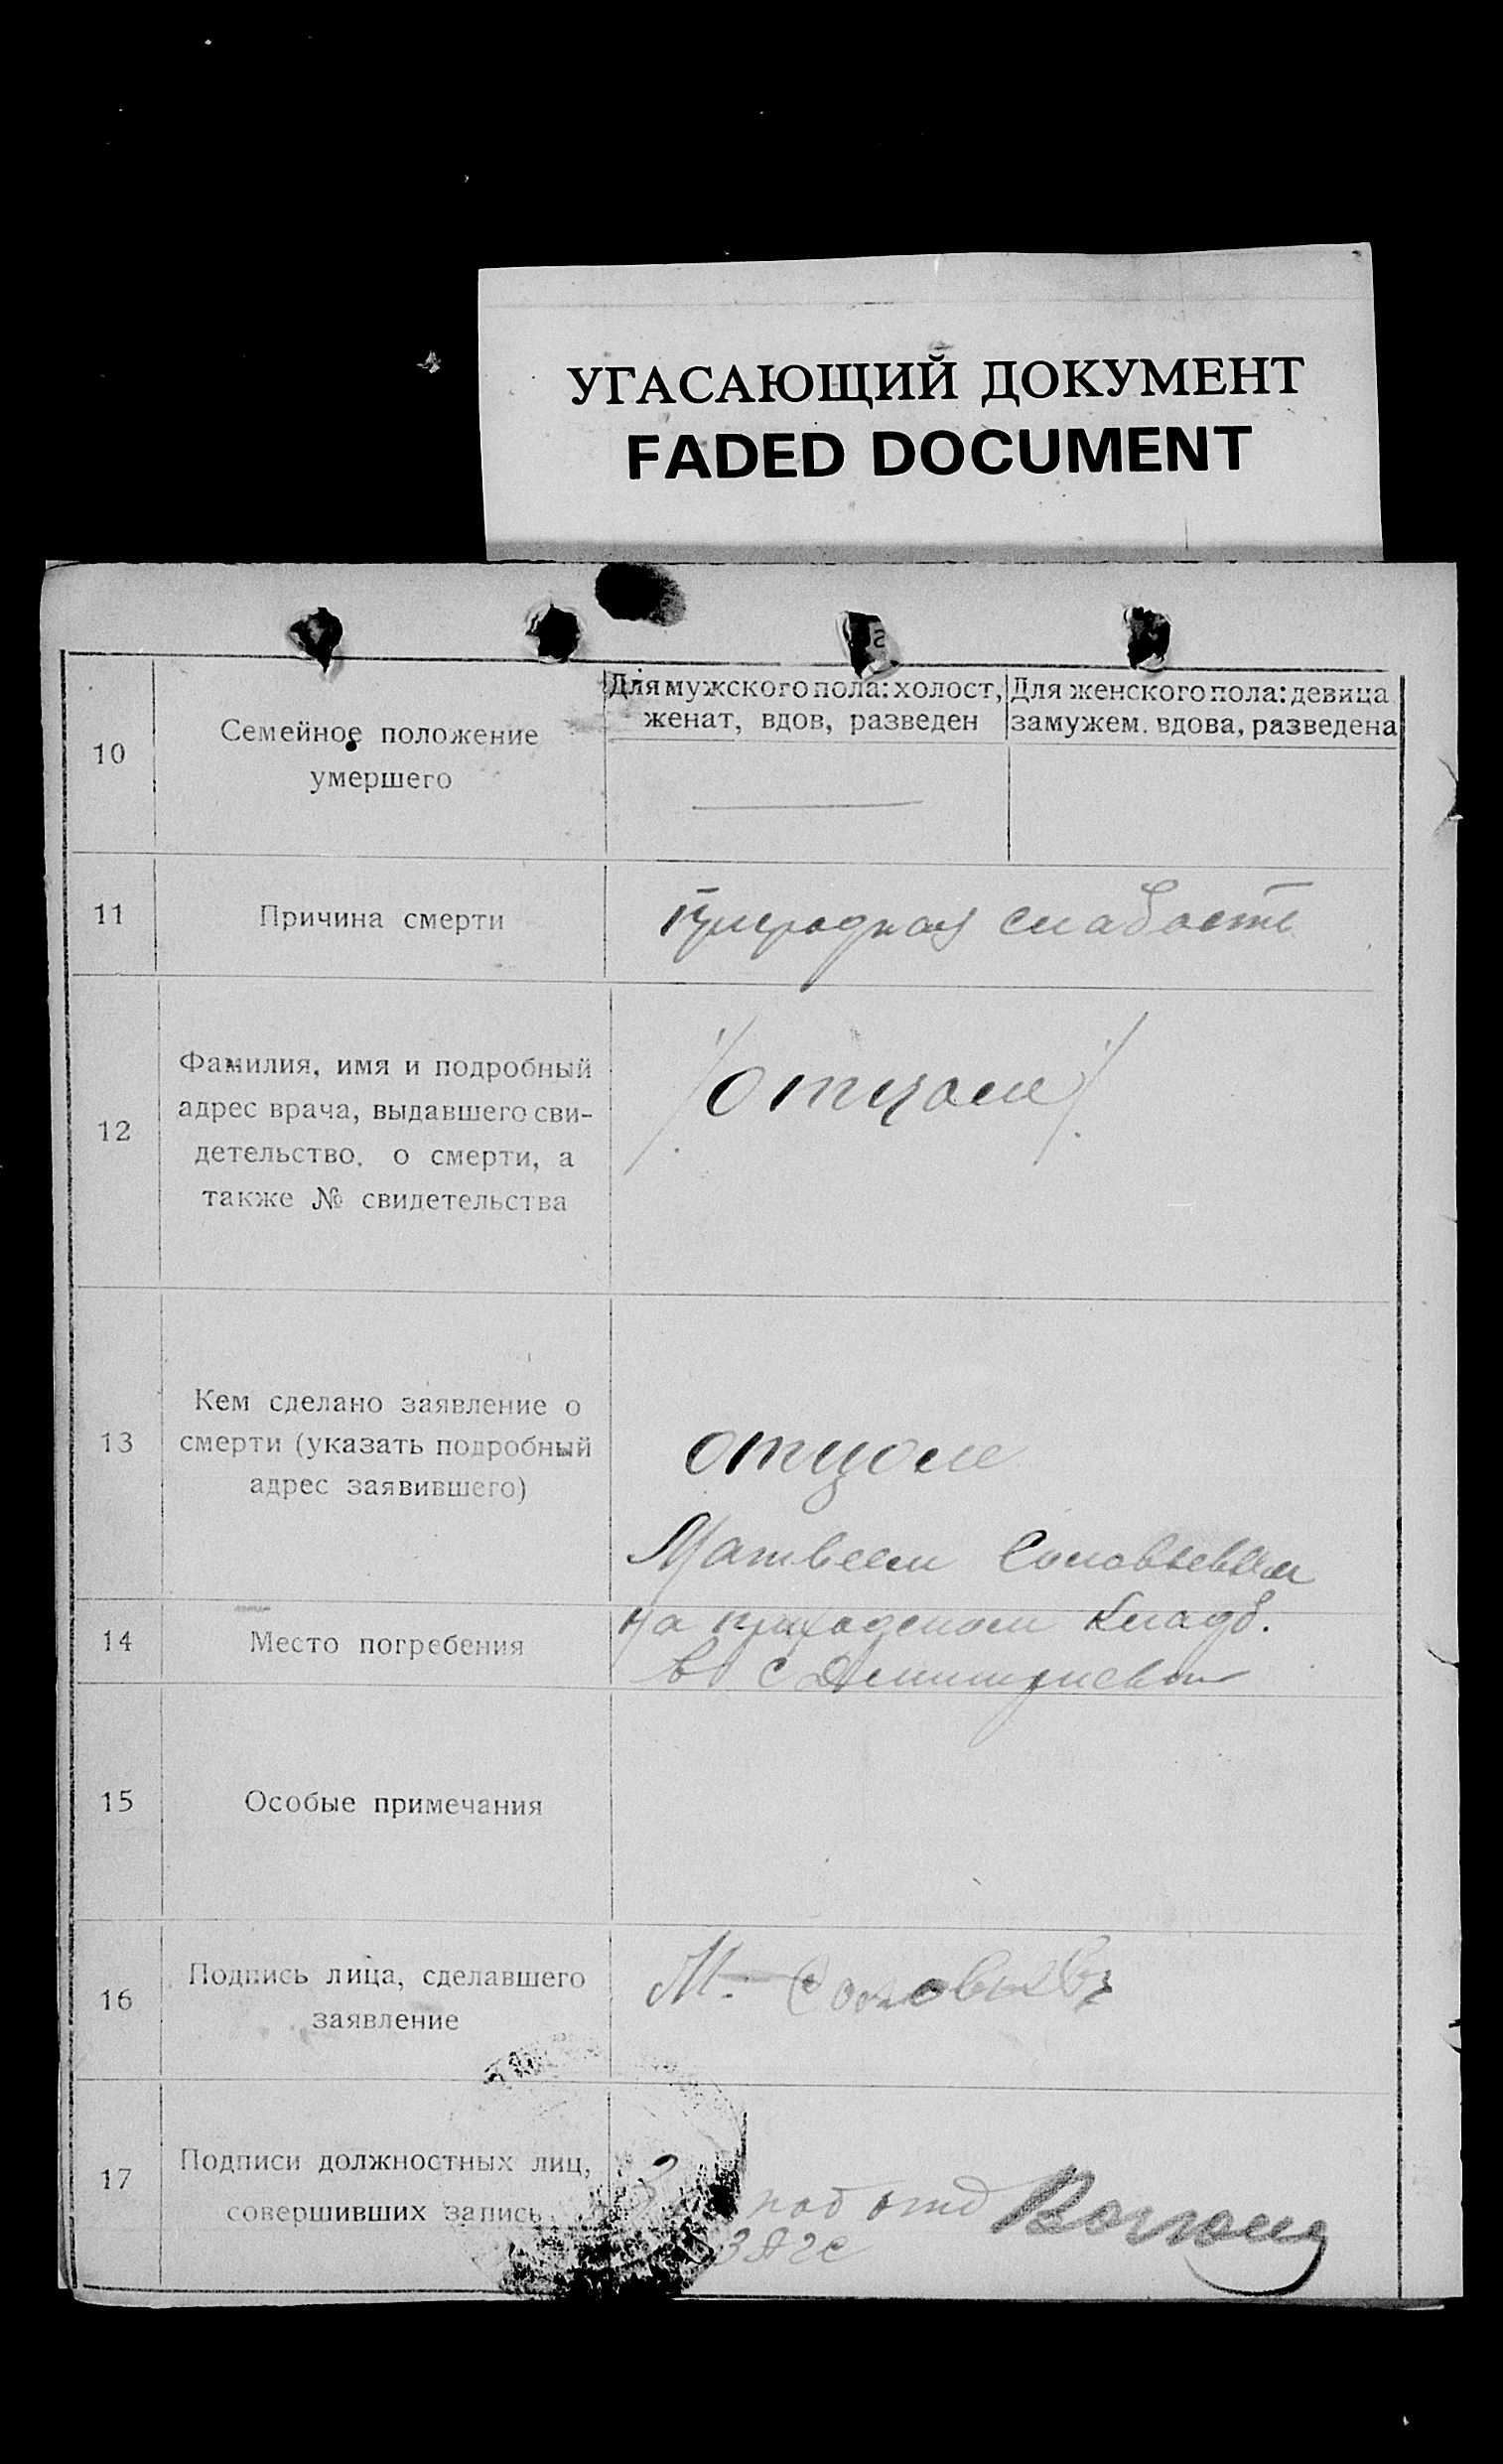 УГАСАЮЩИЙ ДОКУМЕНТ
FADED DOCUMENT
10
Семейное положение
умершего
Для мужского пола: холост,
женат, вдов, разведен
Для женского пола: девица
замужем. вдова, разведена
11
Причина смерти
Природная слабость
12
Фамилия, имя и подробный
адрес врача, выдавшего сви-
детельство, о смерти, а
также № свидетельства
/отцом/
13
Кем сделано заявление о
смерти (указать подробный
адрес заявившего)
отцом
Матвеем Соловьевым
14
Место погребения
на приходском кладб.
в с Димитриевом
15
Особые примечания
16
Подпись лица, сделавшего
заявление
М. Соловьевъ
17
Подписи должностных лиц,
совершивших запись
отд
ЗАГС